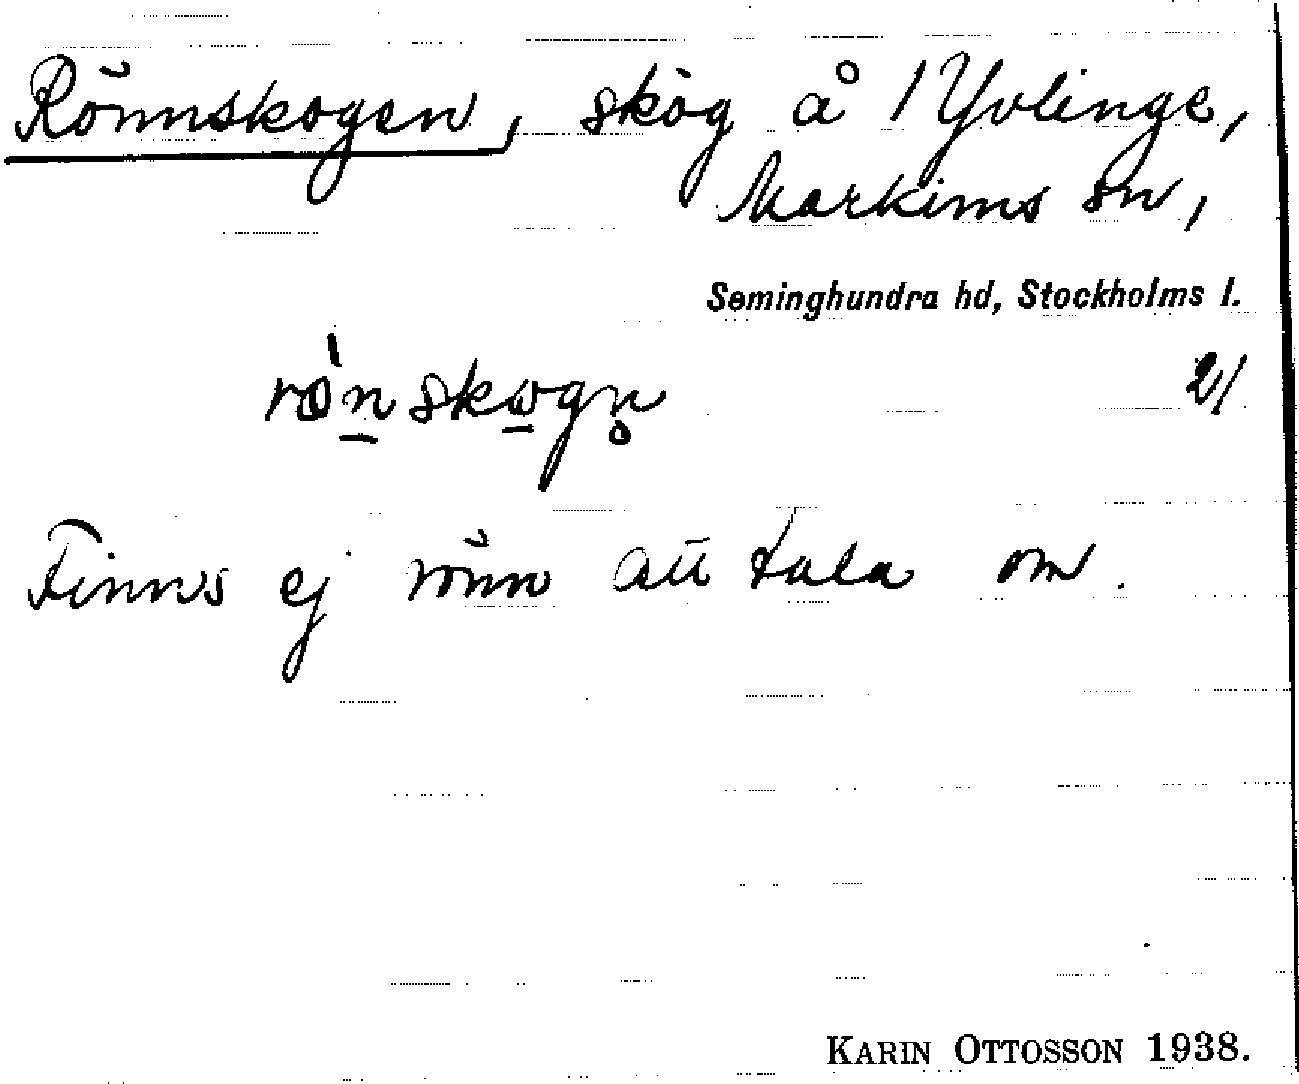 Rönnskogen, skog å 1 Yvlinge,
Markims sn,
Seminghundra hd, Stockholms l.
rö́n̲skω̲gn̥ 2/
Finns ej rönn att tala om.
KARIN OTTOSSON 1938.